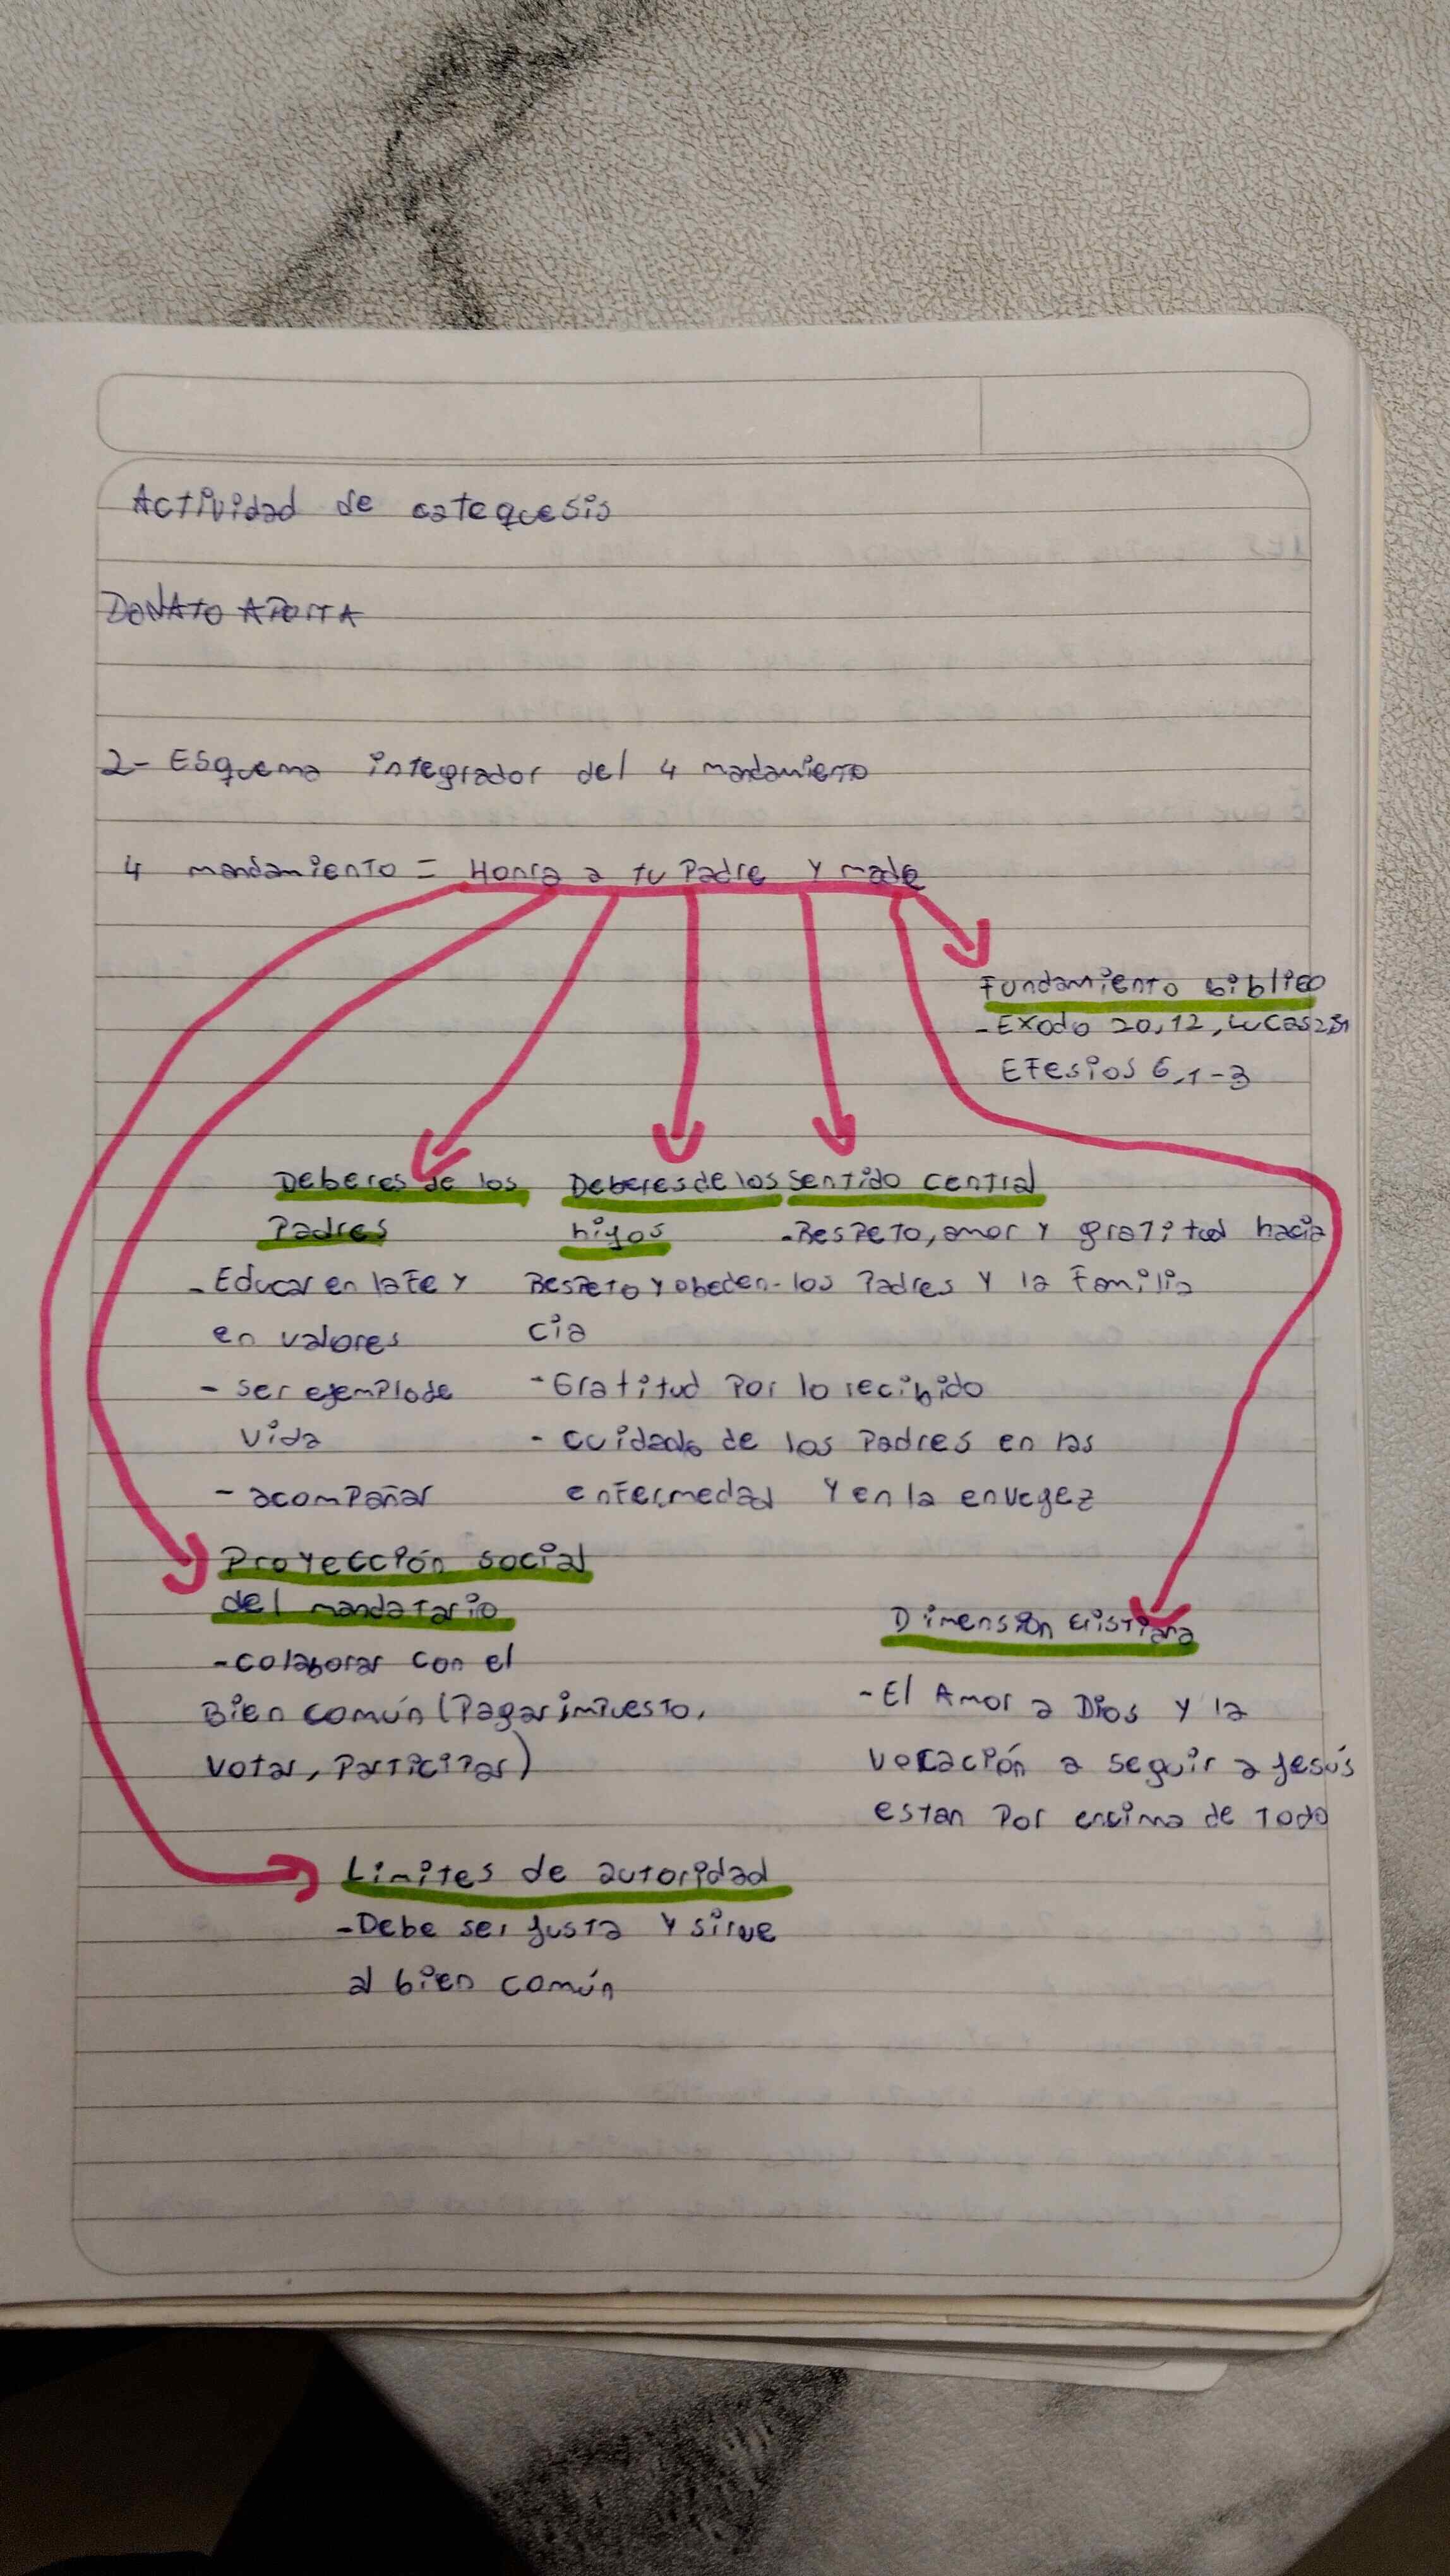 Actividad de catequesis
DONATO APORTA
2- Esquema integrador del 4 mandamiento
4 mandamiento = Honra a tu Padre y made
Fundamiento biblico
- Exodo 20,12, Lucas 2,51
Efesios 6,1-3
Deberes de los
Padres
- Educar en la Fe y
en valores
- ser ejemplo de
vida
- acompañar
Deberes de los
hijos
Respeto y obeden-
cia
- Gratitud Por lo recibido
- cuidado de los Padres en las
enfermedad y en la envegez
Sentido central
- Respeto, amor y gratitud hacia
los Padres y la Familia
Proyección social
del mandatario
- colaborar con el
Bien común (Pagar impuesto,
votar, Participar)
Dimensión cristiana
- El Amor a Dios y la
vocación a seguir a Jesús
estan Por encima de todo
Limites de autoridad
- Debe ser justa y sirve
al bien común